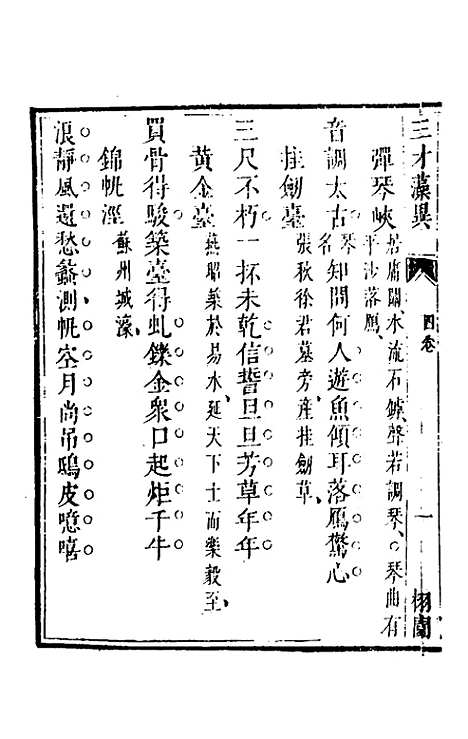 三才藻異
四卷
一
栩園
彈琴峽 居庸關、水流石罅、聲若調琴、○琴曲有平沙落鴈、
音調太古 琴名 知問何人遊魚傾耳落鴈驚心
挂劒臺 張秋徐君墓旁、産挂劒草、
三尺不朽一抔未乾信誓旦旦芳草年年
黃金臺 燕昭築於易水、延天下士而樂毅至、
買骨得駿築臺得虬鑠金衆口起炬千牛
錦帆涇 蘇州城濠、
浪靜風還愁蠡測帆空月尚吊鴟皮噫嘻